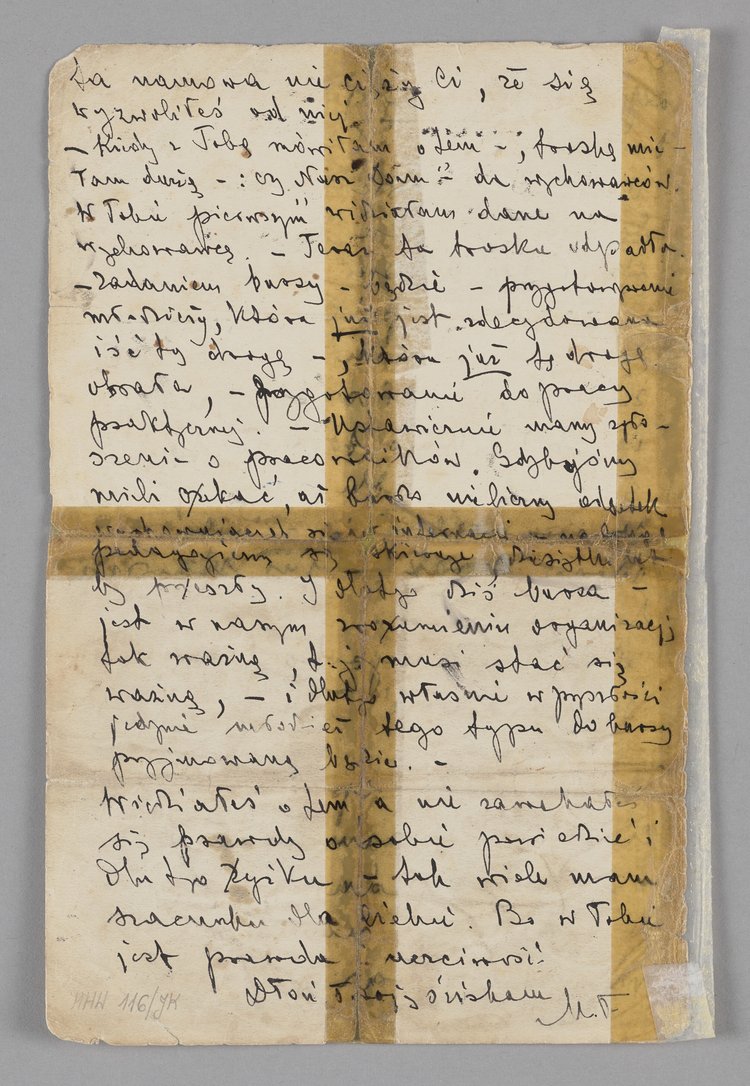 ta namowa nie ciąży Ci, że się
wyzwoliłeś od niej.
– Kiedy z Tobą mówiłam o tem –, troskę mia–
łam dużą – : czy Nasz Dom – da wychowawców.
W Tobie pierwszym widziałam dane na
wychowawcę. – Teraz ta troska odpadła.
– Zadaniem bursy – będzie – przygotowywanie
młodzieży, która już jest zdecydowana
iść tą drogą –, która już tę drogę
obrała, – przygotowanie do pracy
praktycznej. – Ustawicznie mamy zgło–
szenia o pracowników. Gdybyśmy
mieli czekać, aż bardzo nieliczny odsetek
się w internacie – na
pedagogicznej się skieruje dziesiątki lat
by przeszły. I dlatego dziś bursa –
jest w naszym zrozumieniu organizacją
tak ważną, t.j. musi stać się
ważną, – i dlatego właśnie w przyszłości
jedynie młodzież tego typu do bursy
przyjmowaną będzie. –
Wiedziałeś o tem a nie zawahałeś
się prawdy o sobie powiedzieć i
dlatego Zyśku – tak wiele mam
szacunku dla Ciebie. Bo w Tobie
jest prawda i uczciwość.
Dłoń Twoją ściskam
M.F.
MHW 116/JK